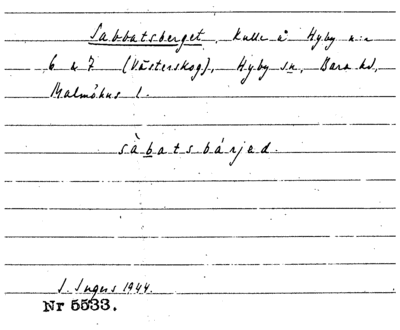 Sabbatsberget, Kulle å Hyby n:r
6 o 7 (Västerskog), Hyby sn, Bara hd,
Malmöhus l.
sàbatsbárjad.
I. Ingers 1944.
Nr 5533.